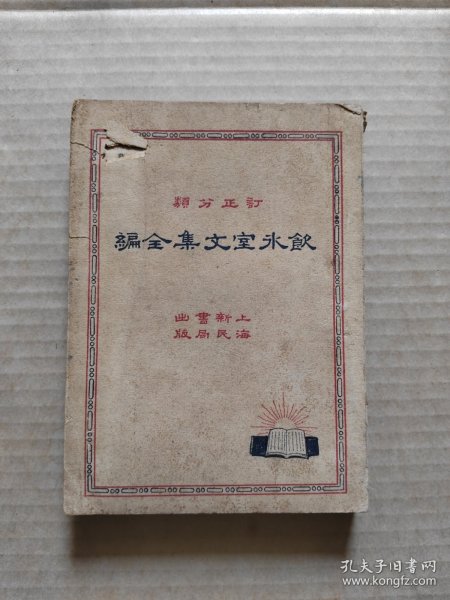 訂正分類
飲冰室文集全編
上海新民書局出版
孔夫子旧书网
www.kongfz.com